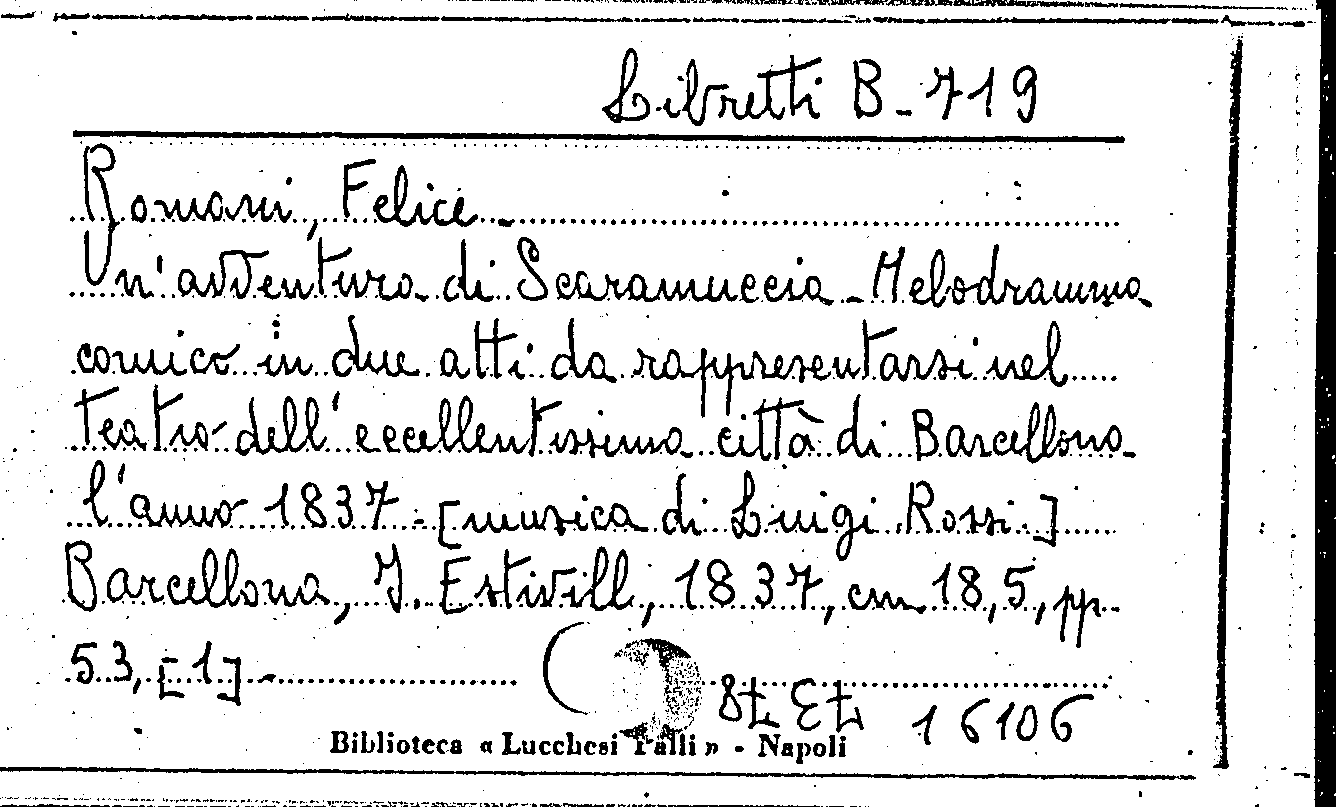 Libretti B-719
Romani, Felice -
Un'avventura di Scaramuccia - Melodramma
comico in due atti da rappresentarsi nel
teatro dell'eccellentissima città di Barcellona
l'anno 1837 - [musica di Luigi Rossi.]
Barcellona, J. Estivill, 1837, cm 18,5, pp.
53, [1] -
16106
Biblioteca « Lucchesi Palli » - Napoli